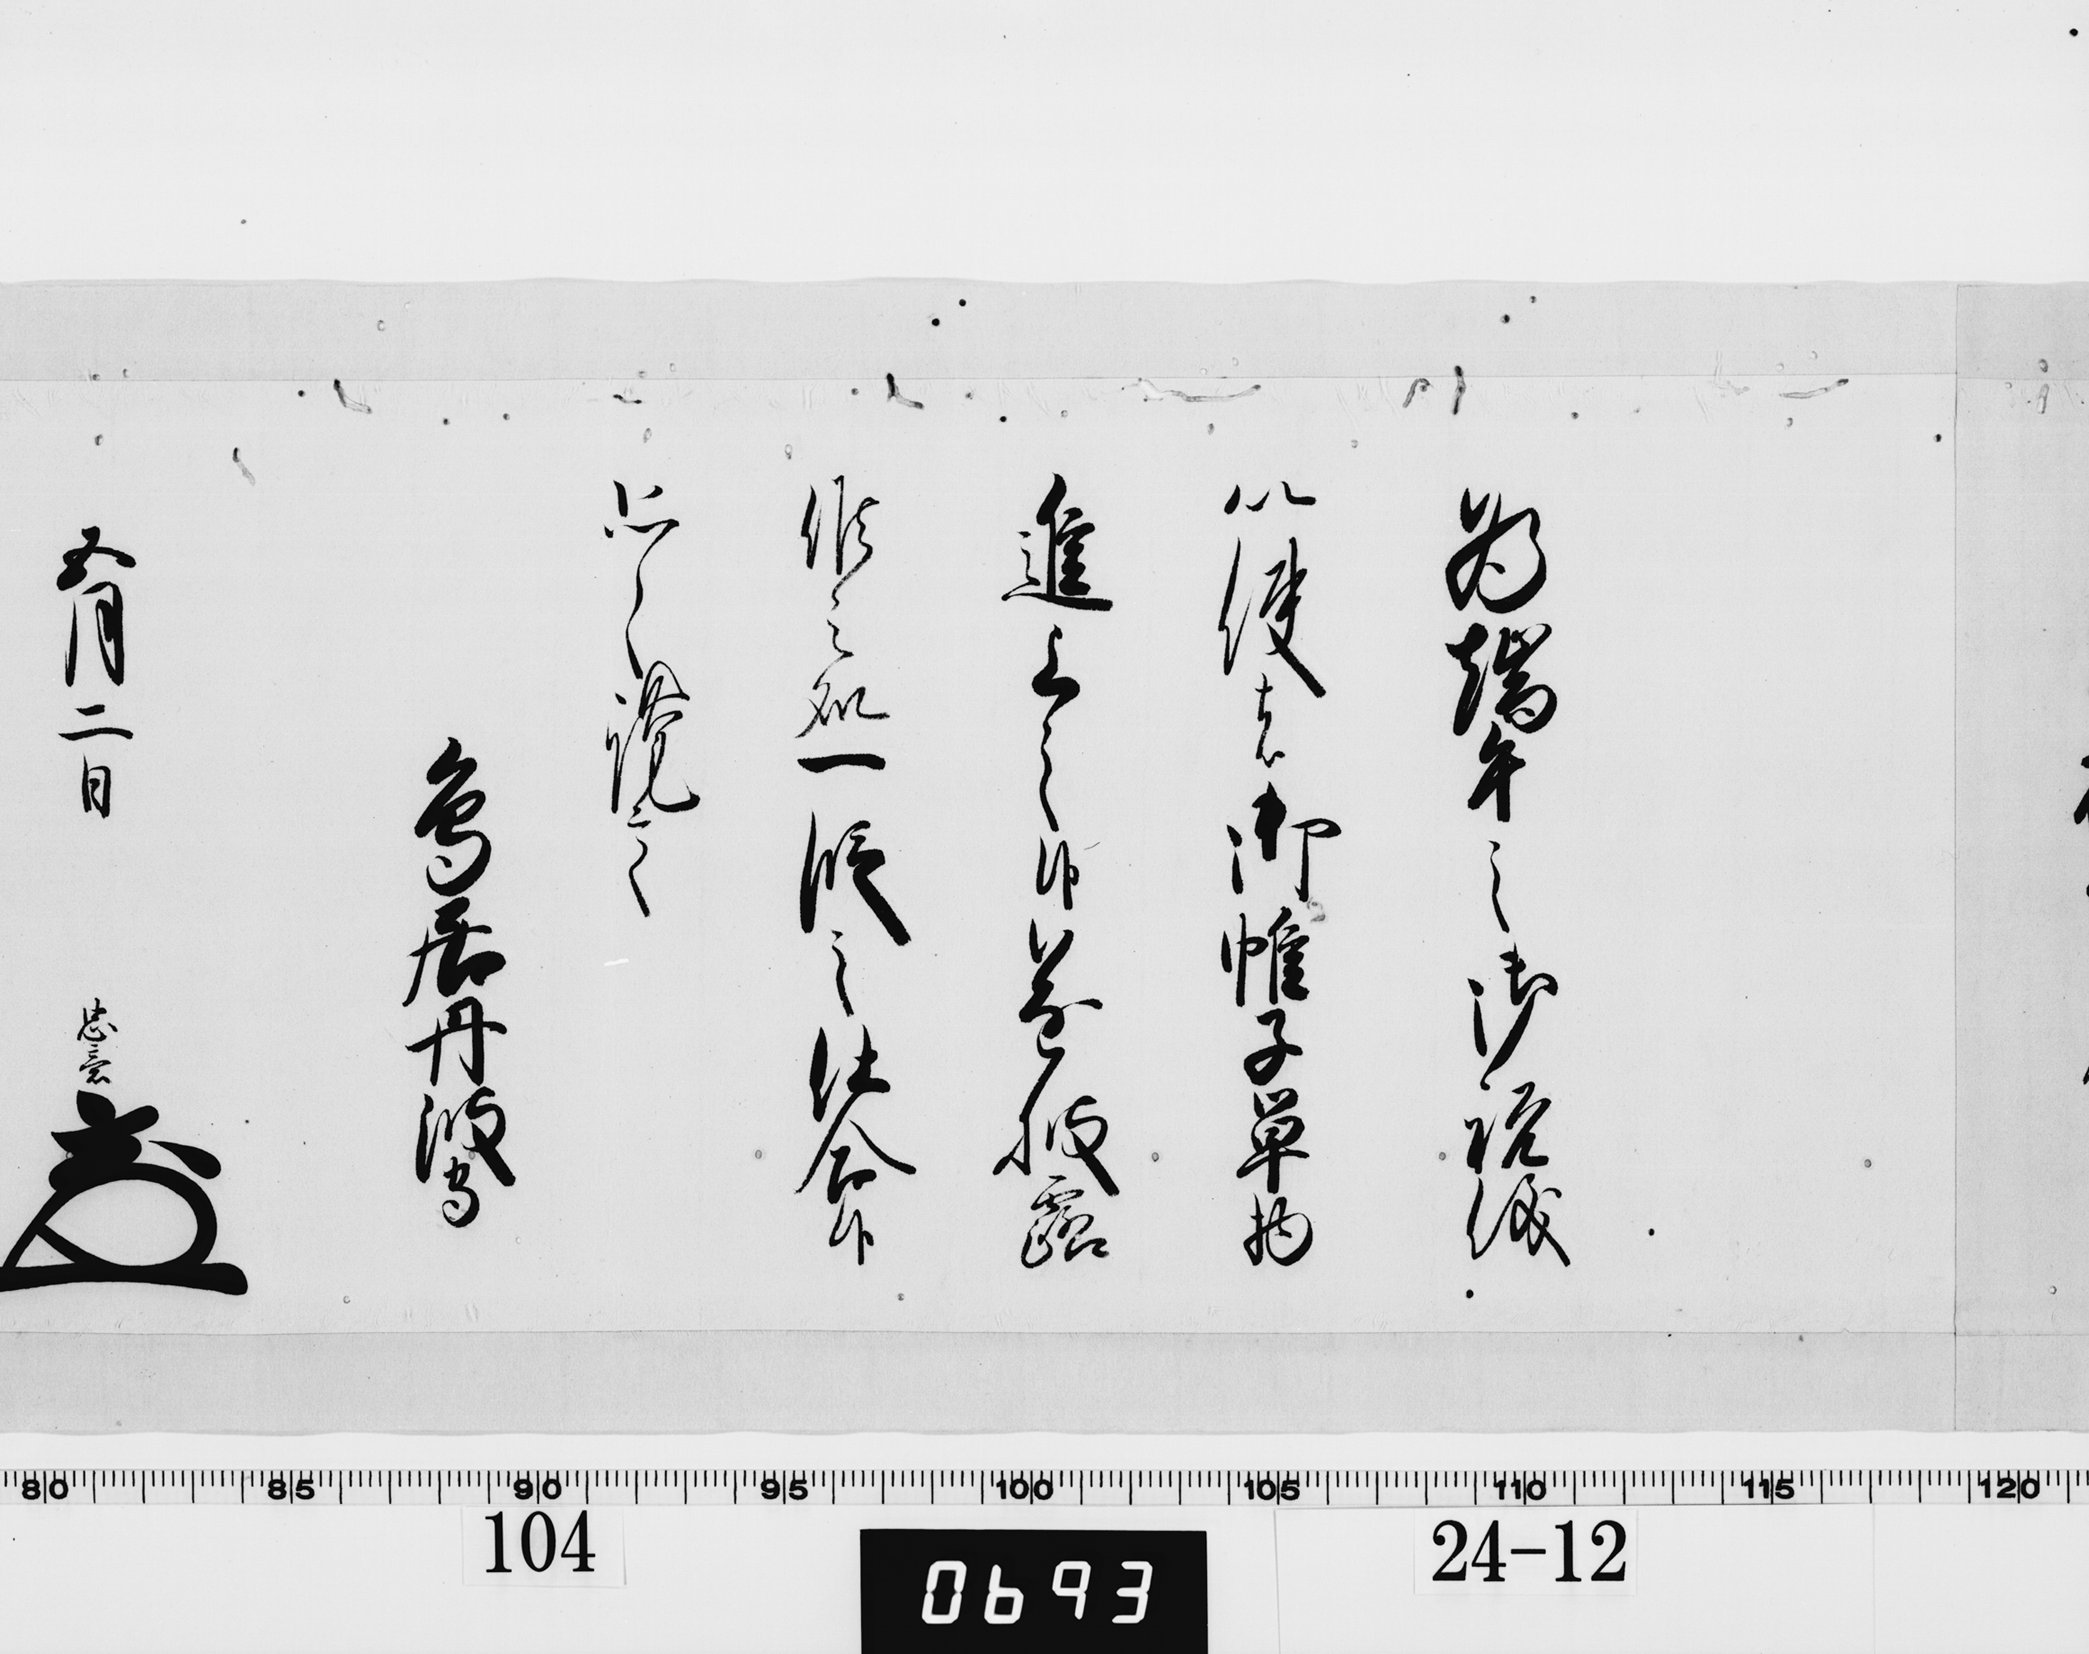 為端午之御祝儀
以使者御帷子単物
進上之候遂披露
候之処一段之仕合候
恐々謹言
鳥居丹波守
五月二日 忠意
80 85 90 95 100 105 110 115 120
104 0693 24-12